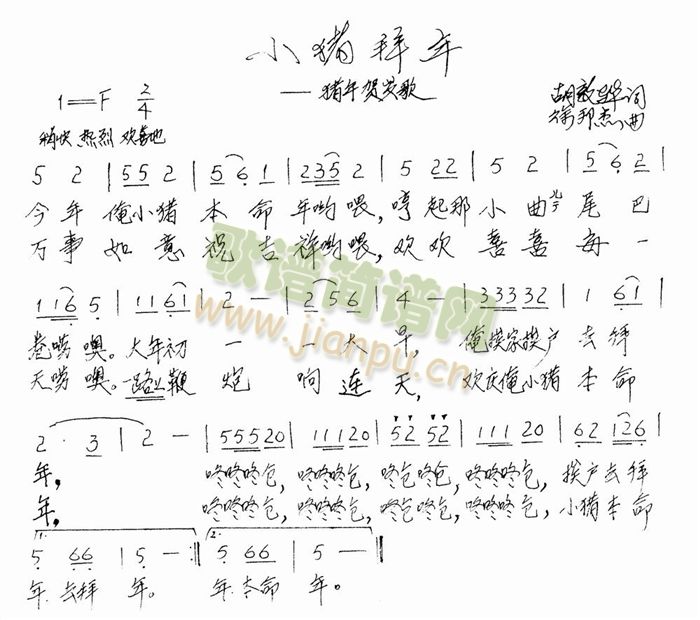 小猪拜年
——猪年贺岁歌
1=F 2/4
胡敬华词
徐邦杰曲
畅快 热烈 欢喜地
5 2 | 55 2 | 5 6 1 | 235 2 | 5 22 | 5 2 | 5 6 2 |
今年 俺小猪 本命 年哟喂，哼起那 小曲 尾巴
万事 如意 祝吉 祥哟喂，欢欢 喜喜 每一
116 5 | 116 1 | 2 — | 2 5 6 | 4 — | 33332 | 1 61 |
卷唠噢。大年初 一 一大 早，俺挨家挨户 去拜
天唠噢。一路上鞭 炮 响连 天，欢庆俺小猪 本命
2 · 3 | 2 — | 55520 | 11120 | 52 52 | 111 20 | 62 126 |
年，咚咚咚仓，咚咚咚仓，咚仓咚仓，咚咚咚仓，挨户去拜
年，咚咚咚仓，咚咚咚仓，咚仓咚仓，咚咚咚仓，小猪本命
1. 2.
5 66 | 5 — :|| 5 66 | 5 — ||
年 去拜 年。 年 本命 年。
歌谱简谱网
www.jianpu.cn